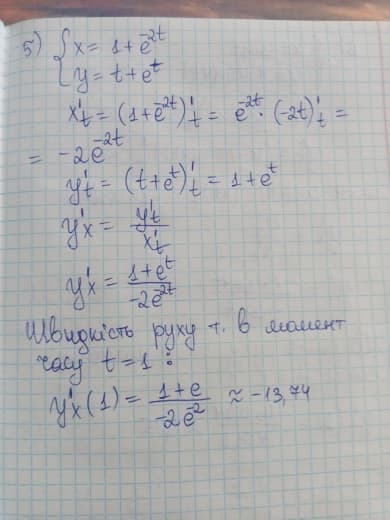 5) { x = 1 + e^{-2t}
y = t + e^t
x't = (1+e^{-2t})'t = e^{-2t} · (-2t)'t =
= -2e^{-2t}
y't = (t+e^t)'t = 1+e^t
y'x = y't / x't
y'x = 1+e^t / -2e^{-2t}
Швидкість руху т. в момент
часу t = 1 :
y'x (1) = 1+e / -2e^{-2} ≈ -13,74